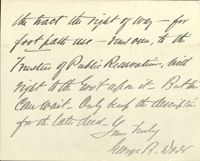 the tract the right of way – for
foot path use – runs over, to the
Trustees of Public Reservations, with
right to the Govt upon it. But this
can wait. Only keep the description
for the later deed.
Yours truly
George B. Dorr